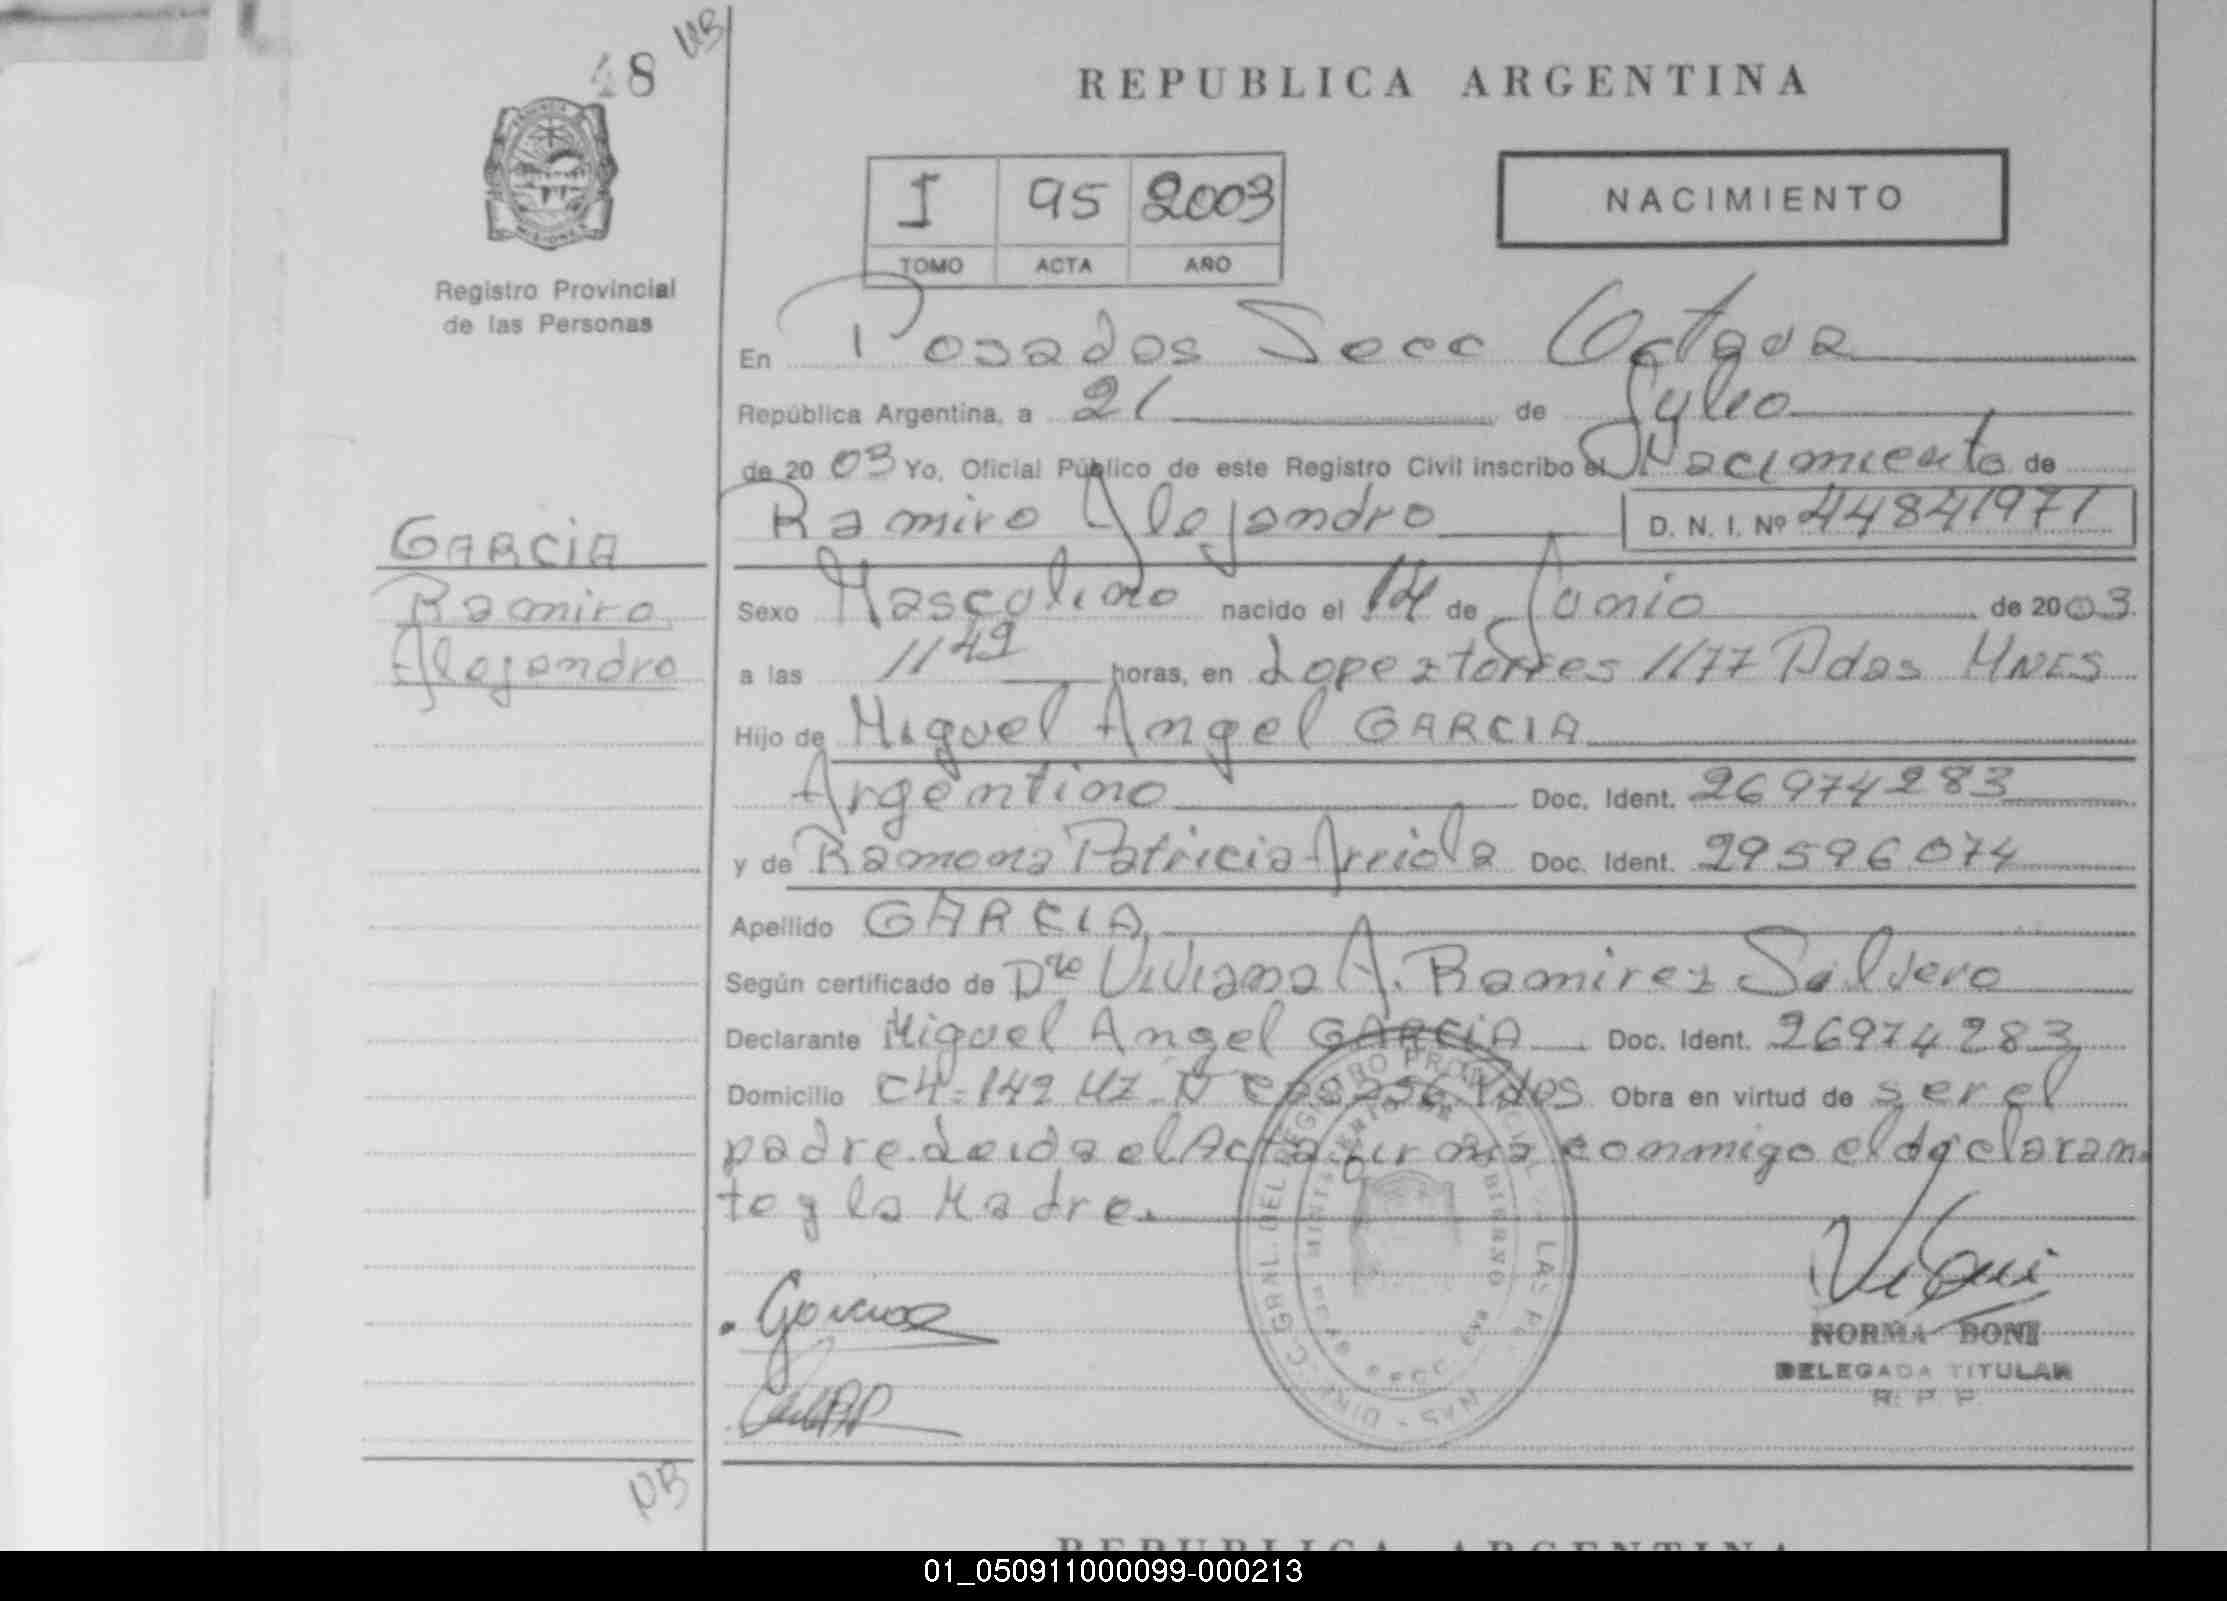 48 NB
REPUBLICA ARGENTINA
PROVINCIA
MISIONES
Registro Provincial
de las Personas
I 95 2003
TOMO ACTA AÑO
NACIMIENTO
En Posadas Secc Octava
República Argentina, a 21 de Julio
de 2003 Yo, Oficial Público de este Registro Civil inscribo el Nacimiento de
Ramiro Alejandro D. N. I. Nº 44841971
GARCIA
Ramiro
Alejandro
Sexo Masculino nacido el 14 de Junio de 2003.
a las 11 49 horas, en Lopez torres 1177 Pdas MNES
Hijo de Miguel Angel GARCIA
Argentino Doc. Ident. 26974283
y de Ramona Patricia Arriola Doc. Ident. 29596074
Apellido GARCIA
Según certificado de Dra Viviana A. Ramirez
Declarante Miguel Angel GARCIA Doc. Ident. 26974283
Domicilio C4-142 MZ-N Pdas Obra en virtud de ser el
padre. Leida el Acta firma conmigo el declaran
te y la Madre.
Garcia
NORMA BONI
DELEGADA TITULAR
R. P. P.
NB
REPUBLICA ARGENTINA
01_050911000099-000213